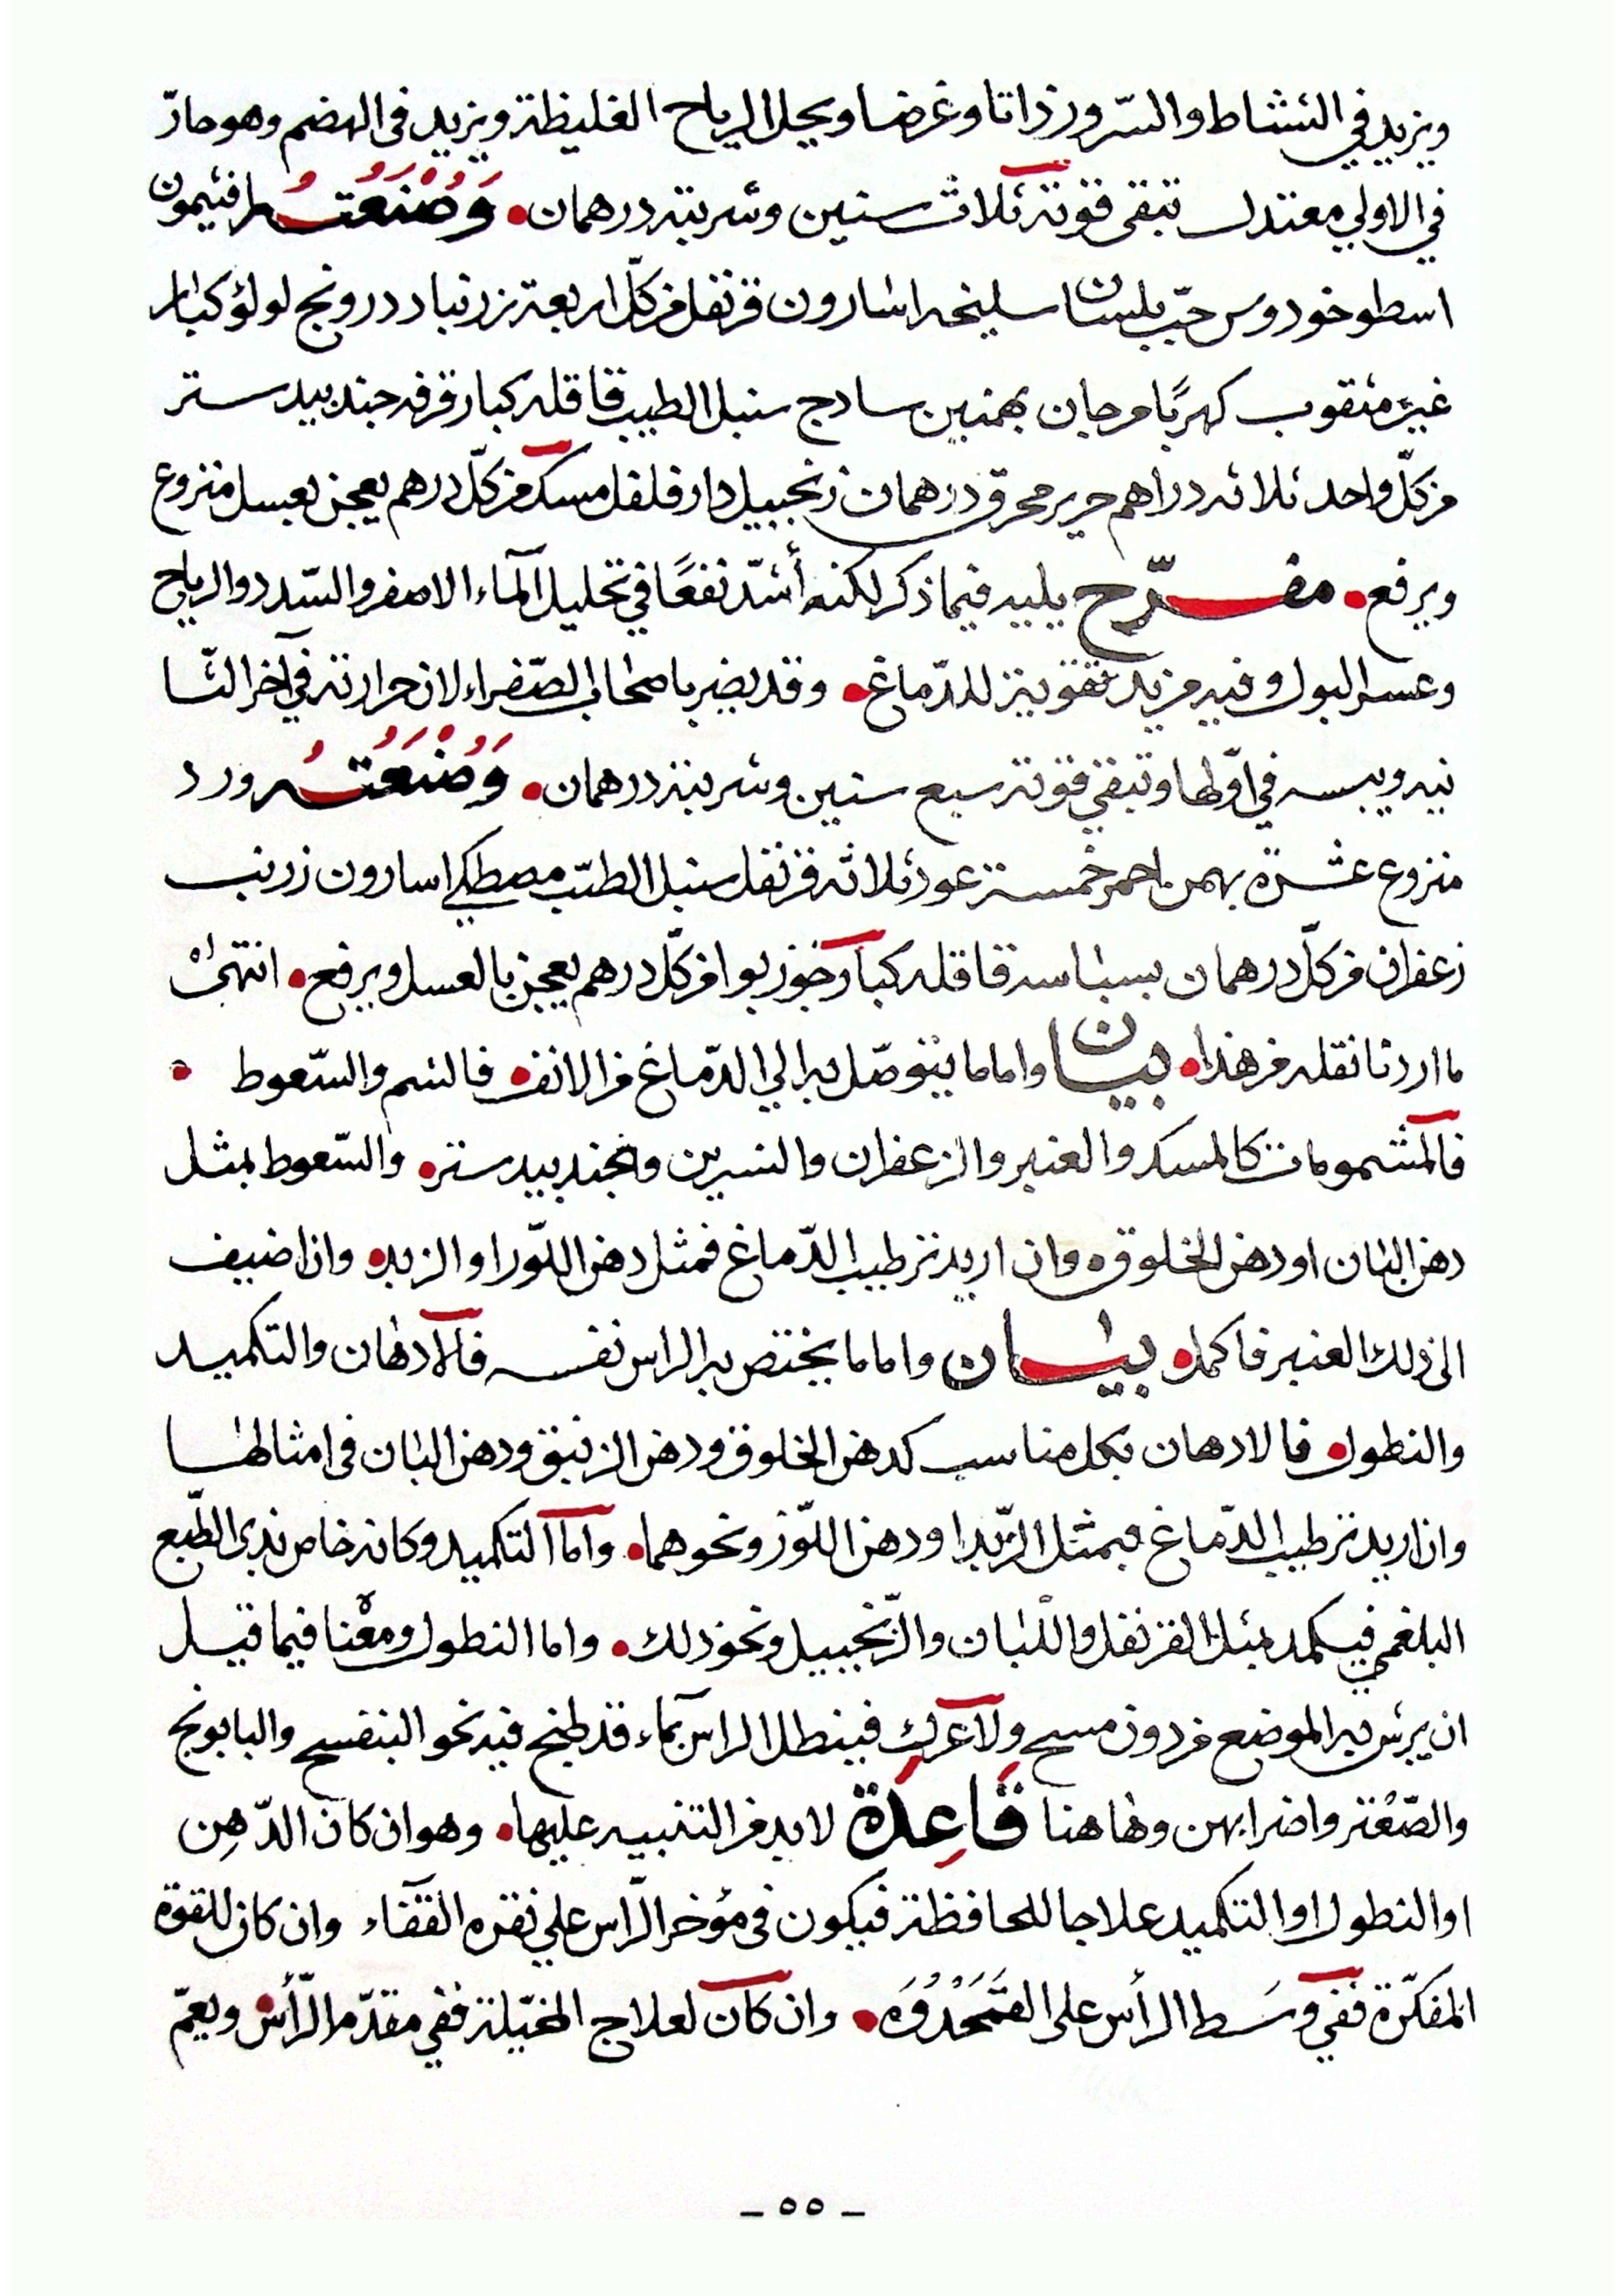 ويزيد في النشاط والسّرور ذاتا وغرضا ويحلل الرياح الغليظة ويزيد في الهضم وهو حارّ
في الاولي معتدل تبقى قوته ثلاث سنين وشربته درهمان • وَصُنْعَتُه افتيمون
اسطوخودوس حبّ بلسان سليخه اسارون قرنفل من كلّ اربعة زرنباد درونج لولؤ كبار
غير مثقوب كهربًا مرجان بهمنين سادج سنبل الطيب قاقله كبار قرفه جندبيدستر
من كلّ واحد ثلاثه دراهم حرير محرق درهمان زنجبيل دارفلفل مسك من كلّ درهم يعجن بعسل منزوع
ويرفع • مفرّح يليه فيما ذكر لكنه أشدّ نفعًا في تحليل الماء الاصفر والسّدد والرياح
وعسر البول وفيه مزيد تقوية للدّماغ • وقد يضر باصحاب الصّفراء لان حرارته في آخر الثا
نيه ويبسه في اوّلها وتبقي قوته سبع سنين وشربته درهمان • وَصُنْعَتُه ورد
منزوع عشرة بهمن احمر خمسة عود ثلاثه قرنفل سنبل الطيّب مصطكي اسارون زرنب
زعفران من كلّ درهمان بسباسه قاقله كبار جوز بوا من كلّ درهم يعجن بالعسل ويرفع • انتهى
ما اردنا نقله من هذا • بيان واما ما يتوصّل به الي الدّماغ من الانف • فالشم والسّعوط •
فالمشمومات كالمسك والعنبر والزعفران والنسرين والجندبيدستر • والسّعوط بمثل
دهن البان او دهن الخلوق • وان اريد ترطيب الدّماغ فمثل دهن اللّوز او الزبد • وان اضيف
الى ذلك العنبر فاكمل • بيان واما ما يختص به الراس نفسه فالادهان والتكميد
والنطول • فالادهان بكل مناسب كدهن الخلوق ودهن الزنبق ودهن البان في امثالها
وان اريد ترطيب الدّماغ فبمثل الزّبد او دهن اللّوز ونحوهما • واما التكميد وكانه خاص بذي الطّبع
البلغمي فيكمد بمثل القرنفل واللّبان والزّنجبيل ونحو ذلك • واما النطول ومعْناه فيما قيل
ان يرش به الموضع من دون مسح ولا عرك فينطل الراس بماء قد طبخ فيه نحو البنفسج والبابونج
والصّعْتر واضرابهن وهاهنا قَاعِدَة لا بد من التنبيه عليها • وهو ان كان الدّهِن
او النطول او التكميد علاجا للحافظة فيكون في مؤخر الرّاس علي نقره القفاء وان كان للقوة
المفكرّة ففي وسَط الرأس على القَمَحْدُوَه • وان كان لعلاج المخيّلة ففي مقدّم الرّأس ويعمّ
– ٥٥ –